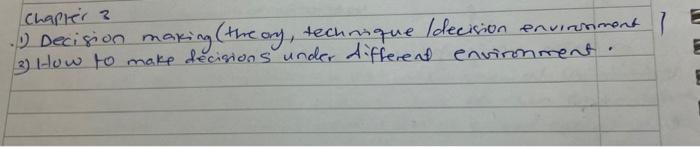 Chapter 3
1) Decision making (theory, technique / decision environment )
2) How to make decisions under different environment.